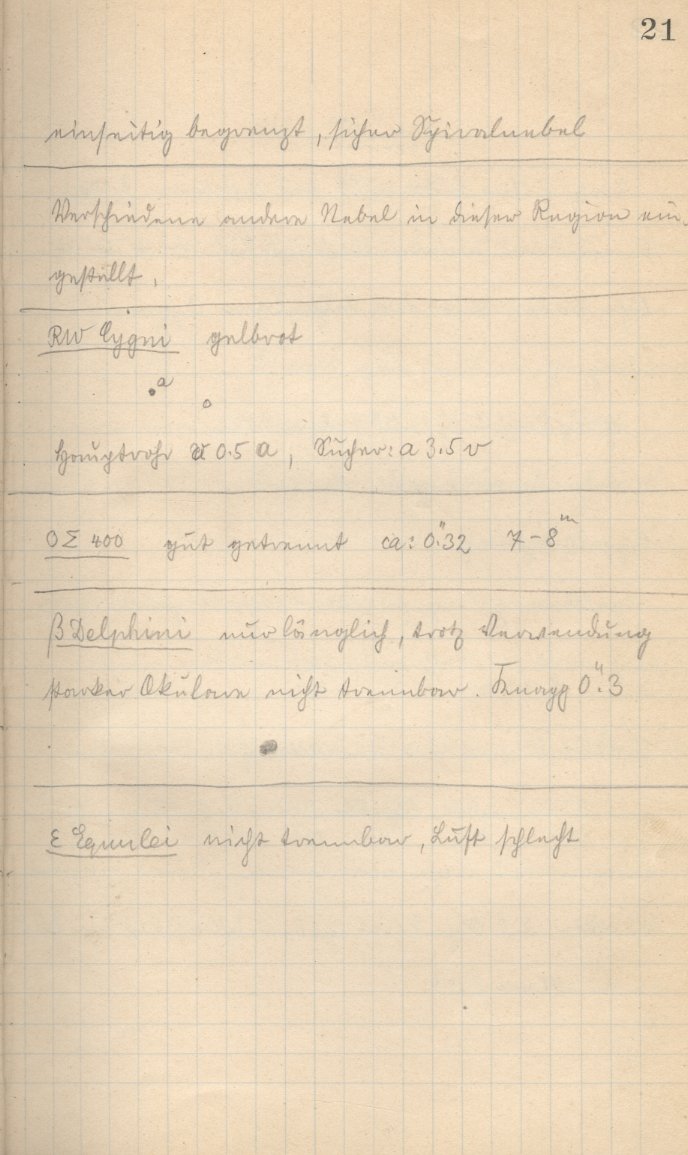 21
einseitig begrenzt, sicher Spiralnebel
Verschiedene andere Nebel in dieser Region ein-
gestellt.
RW Cygni gelbrot
a
Hauptrohr v 0.5 a, Sucher: a 3.5 v
OΣ 400 gut getrennt ca: 0."32 7-8ᵐ
β Delphini nur länglich, trotz Verwendung
starker Okulare nicht trennbar. Knapp 0."3
ε Equulei nicht trennbar, Luft schlecht